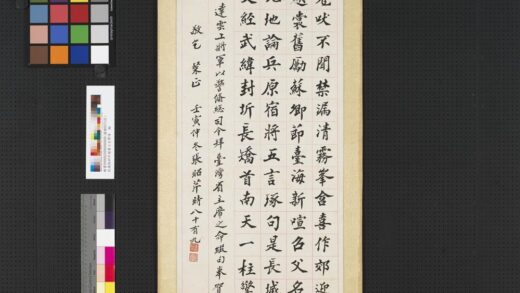 吠不聞禁漏清霧峯含喜作郊迎
裘舊勵蘇卿節臺海新喧召父名
地論兵原宿將五言琢句是長城
文經武緯封圻長矯首南天一柱擎
達雲上將軍以警備總司令拜臺灣省主席之命綴句奉賀
敬乞 榘正 壬寅仲冬張昭芹時八十有九